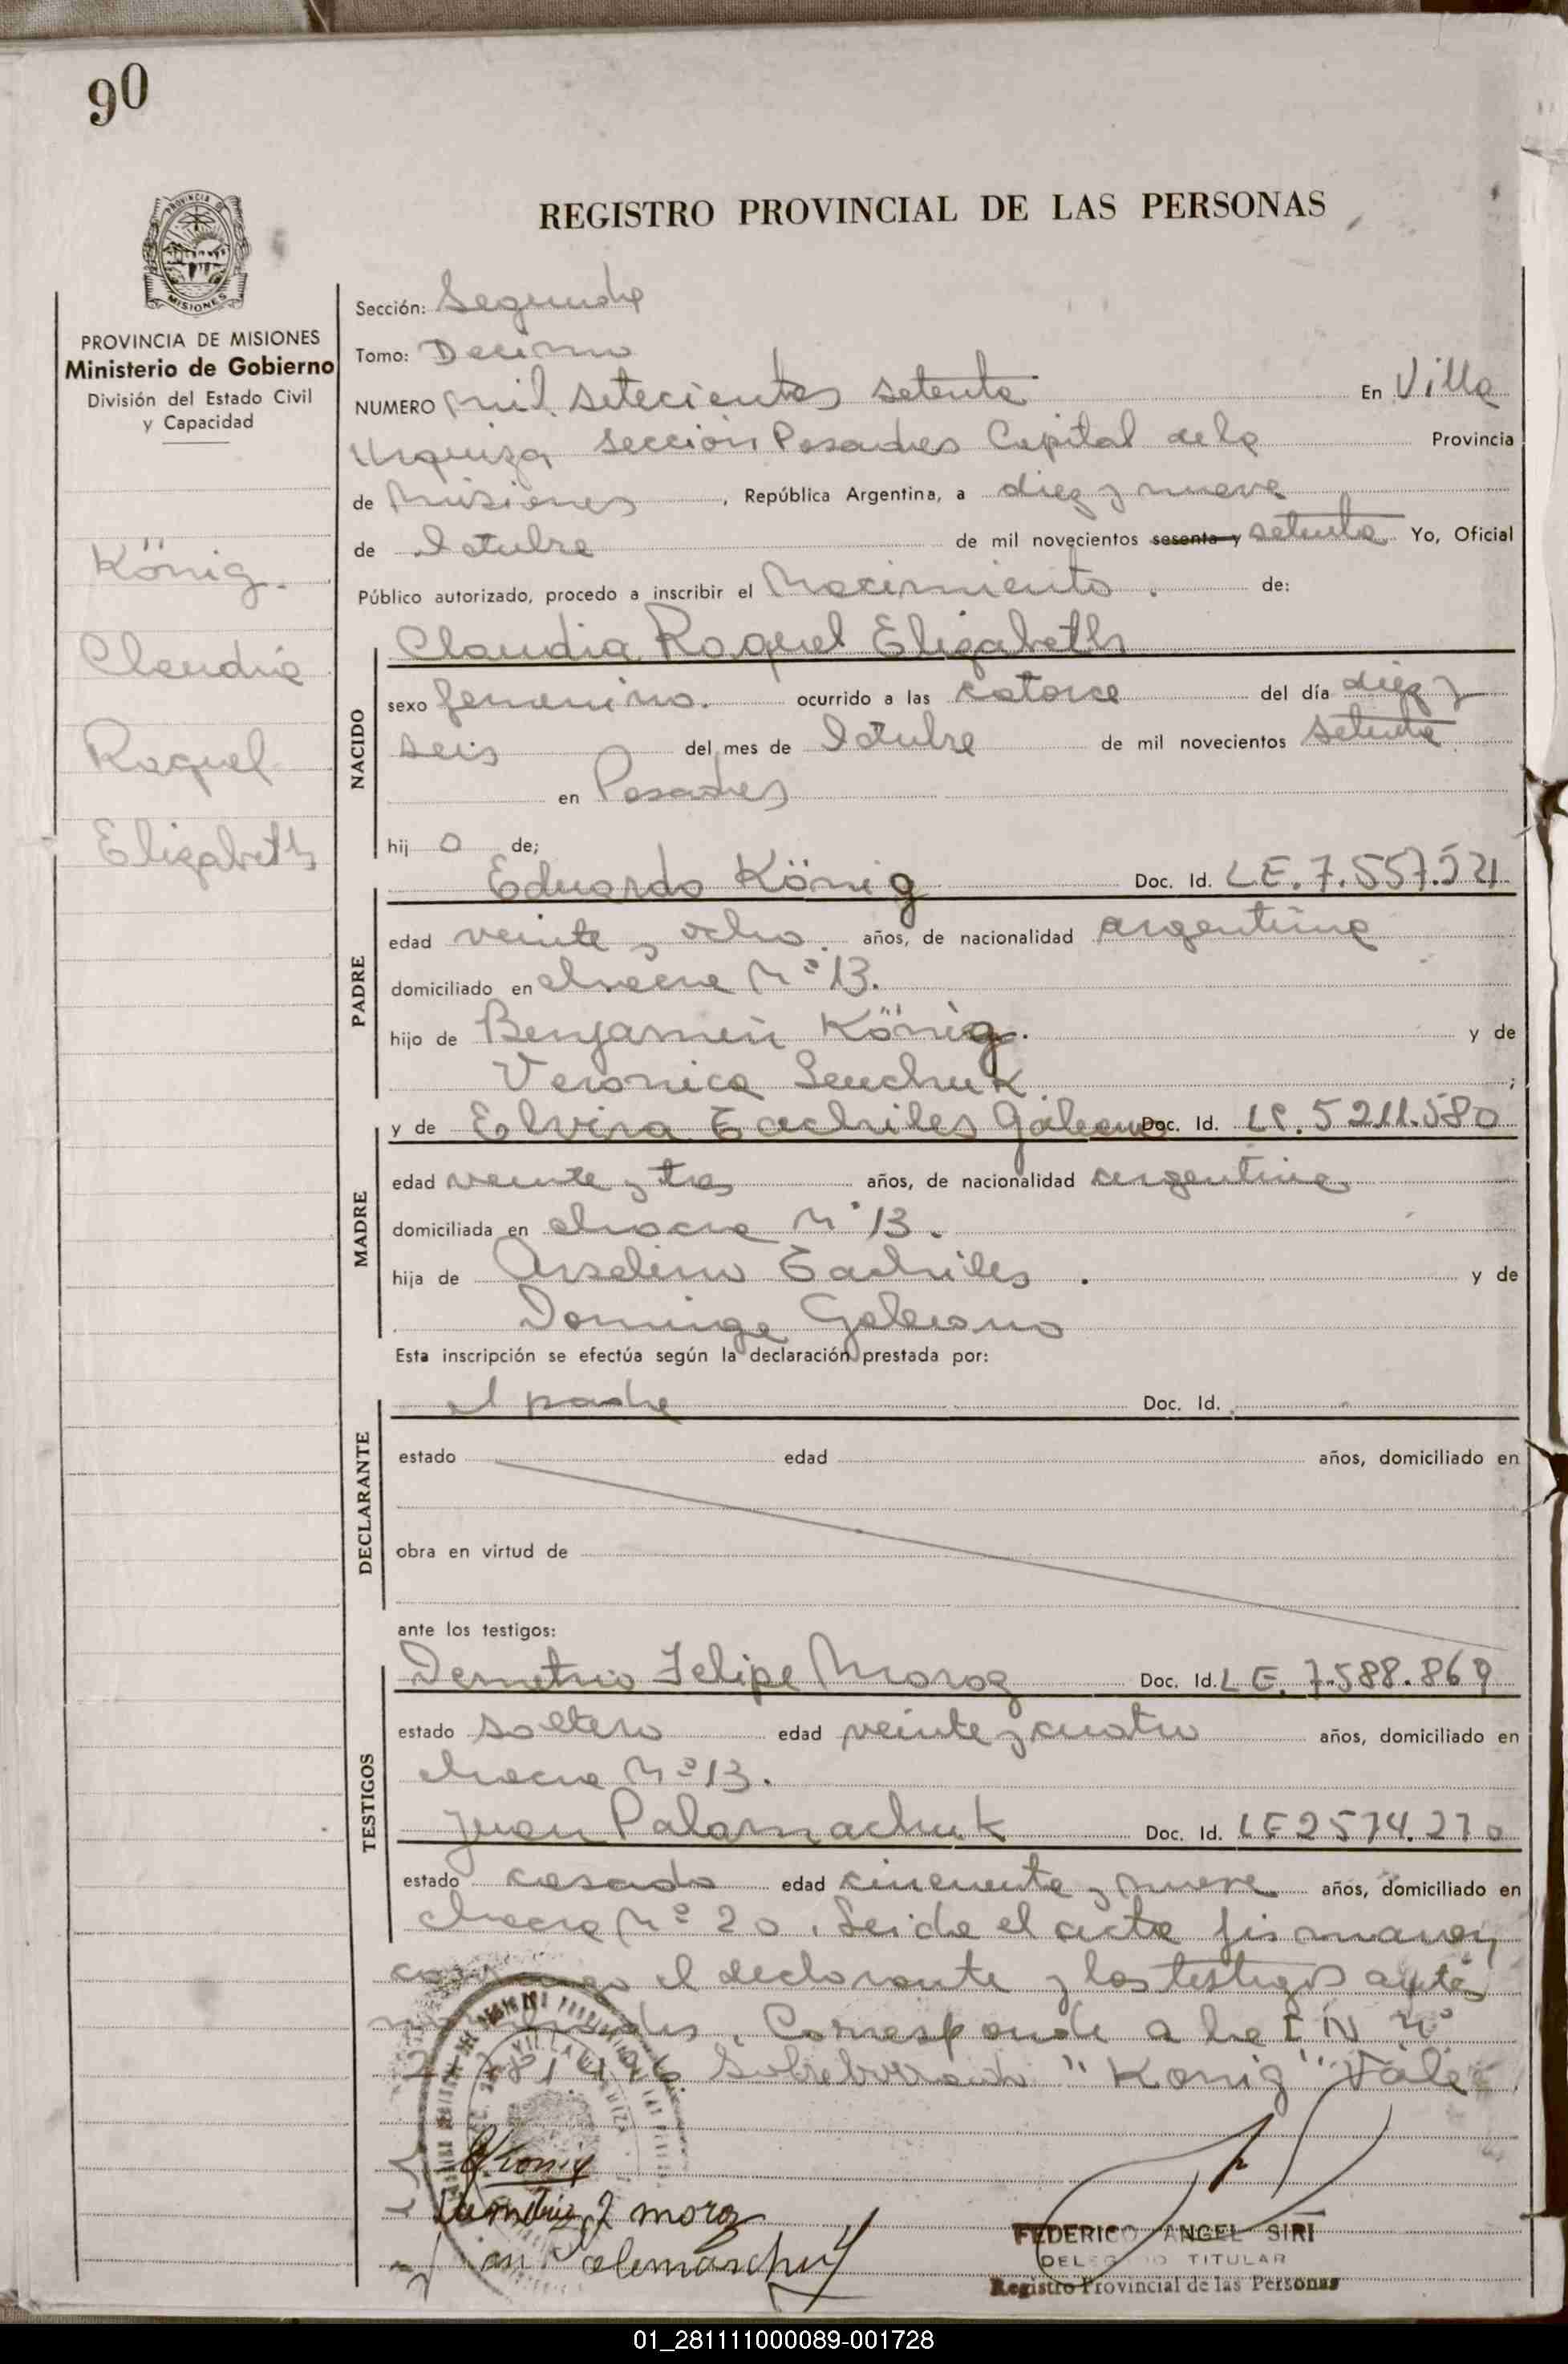 90
PROVINCIA DE
MISIONES
REGISTRO PROVINCIAL DE LAS PERSONAS
PROVINCIA DE MISIONES
Ministerio de Gobierno
División del Estado Civil
y Capacidad
König.
Claudia
Raquel
Elizabeth
Sección: Segunda
Tomo: Decimo
NUMERO mil setecientos setenta En Villa
Urquiza sección Posadas Capital de la Provincia
de Misiones, República Argentina, a diez y nueve
de Octubre de mil novecientos sesenta y setenta Yo, Oficial
Público autorizado, procedo a inscribir el Nacimiento. de:
Claudia Raquel Elizabeth
NACIDO
sexo femenino. ocurrido a las catorce del día diez y
seis del mes de Octubre de mil novecientos setenta
en Posadas
hij a de;
PADRE
Eduardo König Doc. Id. L.E. 7.557.521
edad veinte y ocho. años, de nacionalidad argentina
domiciliado en chacra Nº 13.
hijo de Benjamin König. y de
Veronica Senchuk ;
MADRE
y de Elvira Eachiles Galeano Doc. Id. LC. 5 211.580
edad veinte y tres años, de nacionalidad argentina
domiciliada en chacra Nº 13.
hija de Anselmo Eachiles. y de
Dominga Galeano
Esta inscripción se efectúa según la declaración prestada por:
DECLARANTE
el padre Doc. Id.
estado edad años, domiciliado en
obra en virtud de
ante los testigos:
TESTIGOS
Demetrio Felipe Moroz Doc. Id. L E. 7.588.869
estado soltero edad veinte y cuatro años, domiciliado en
chacra Nº 13.
Juan Palamachuk Doc. Id. LE 2 574.270
estado casado edad cincuenta y nueve años, domiciliado en
chacra Nº 20. Leida el acta firmaron
conmigo el declarante y los testigos antes
. Corresponde a la I N Nº
Sobreborrado "Konig" Vale
E. König
Demetrio F moroz
FEDERICO ANGEL SIRI
DELEGADO TITULAR
Registro Provincial de las Personas
01_281111000089-001728